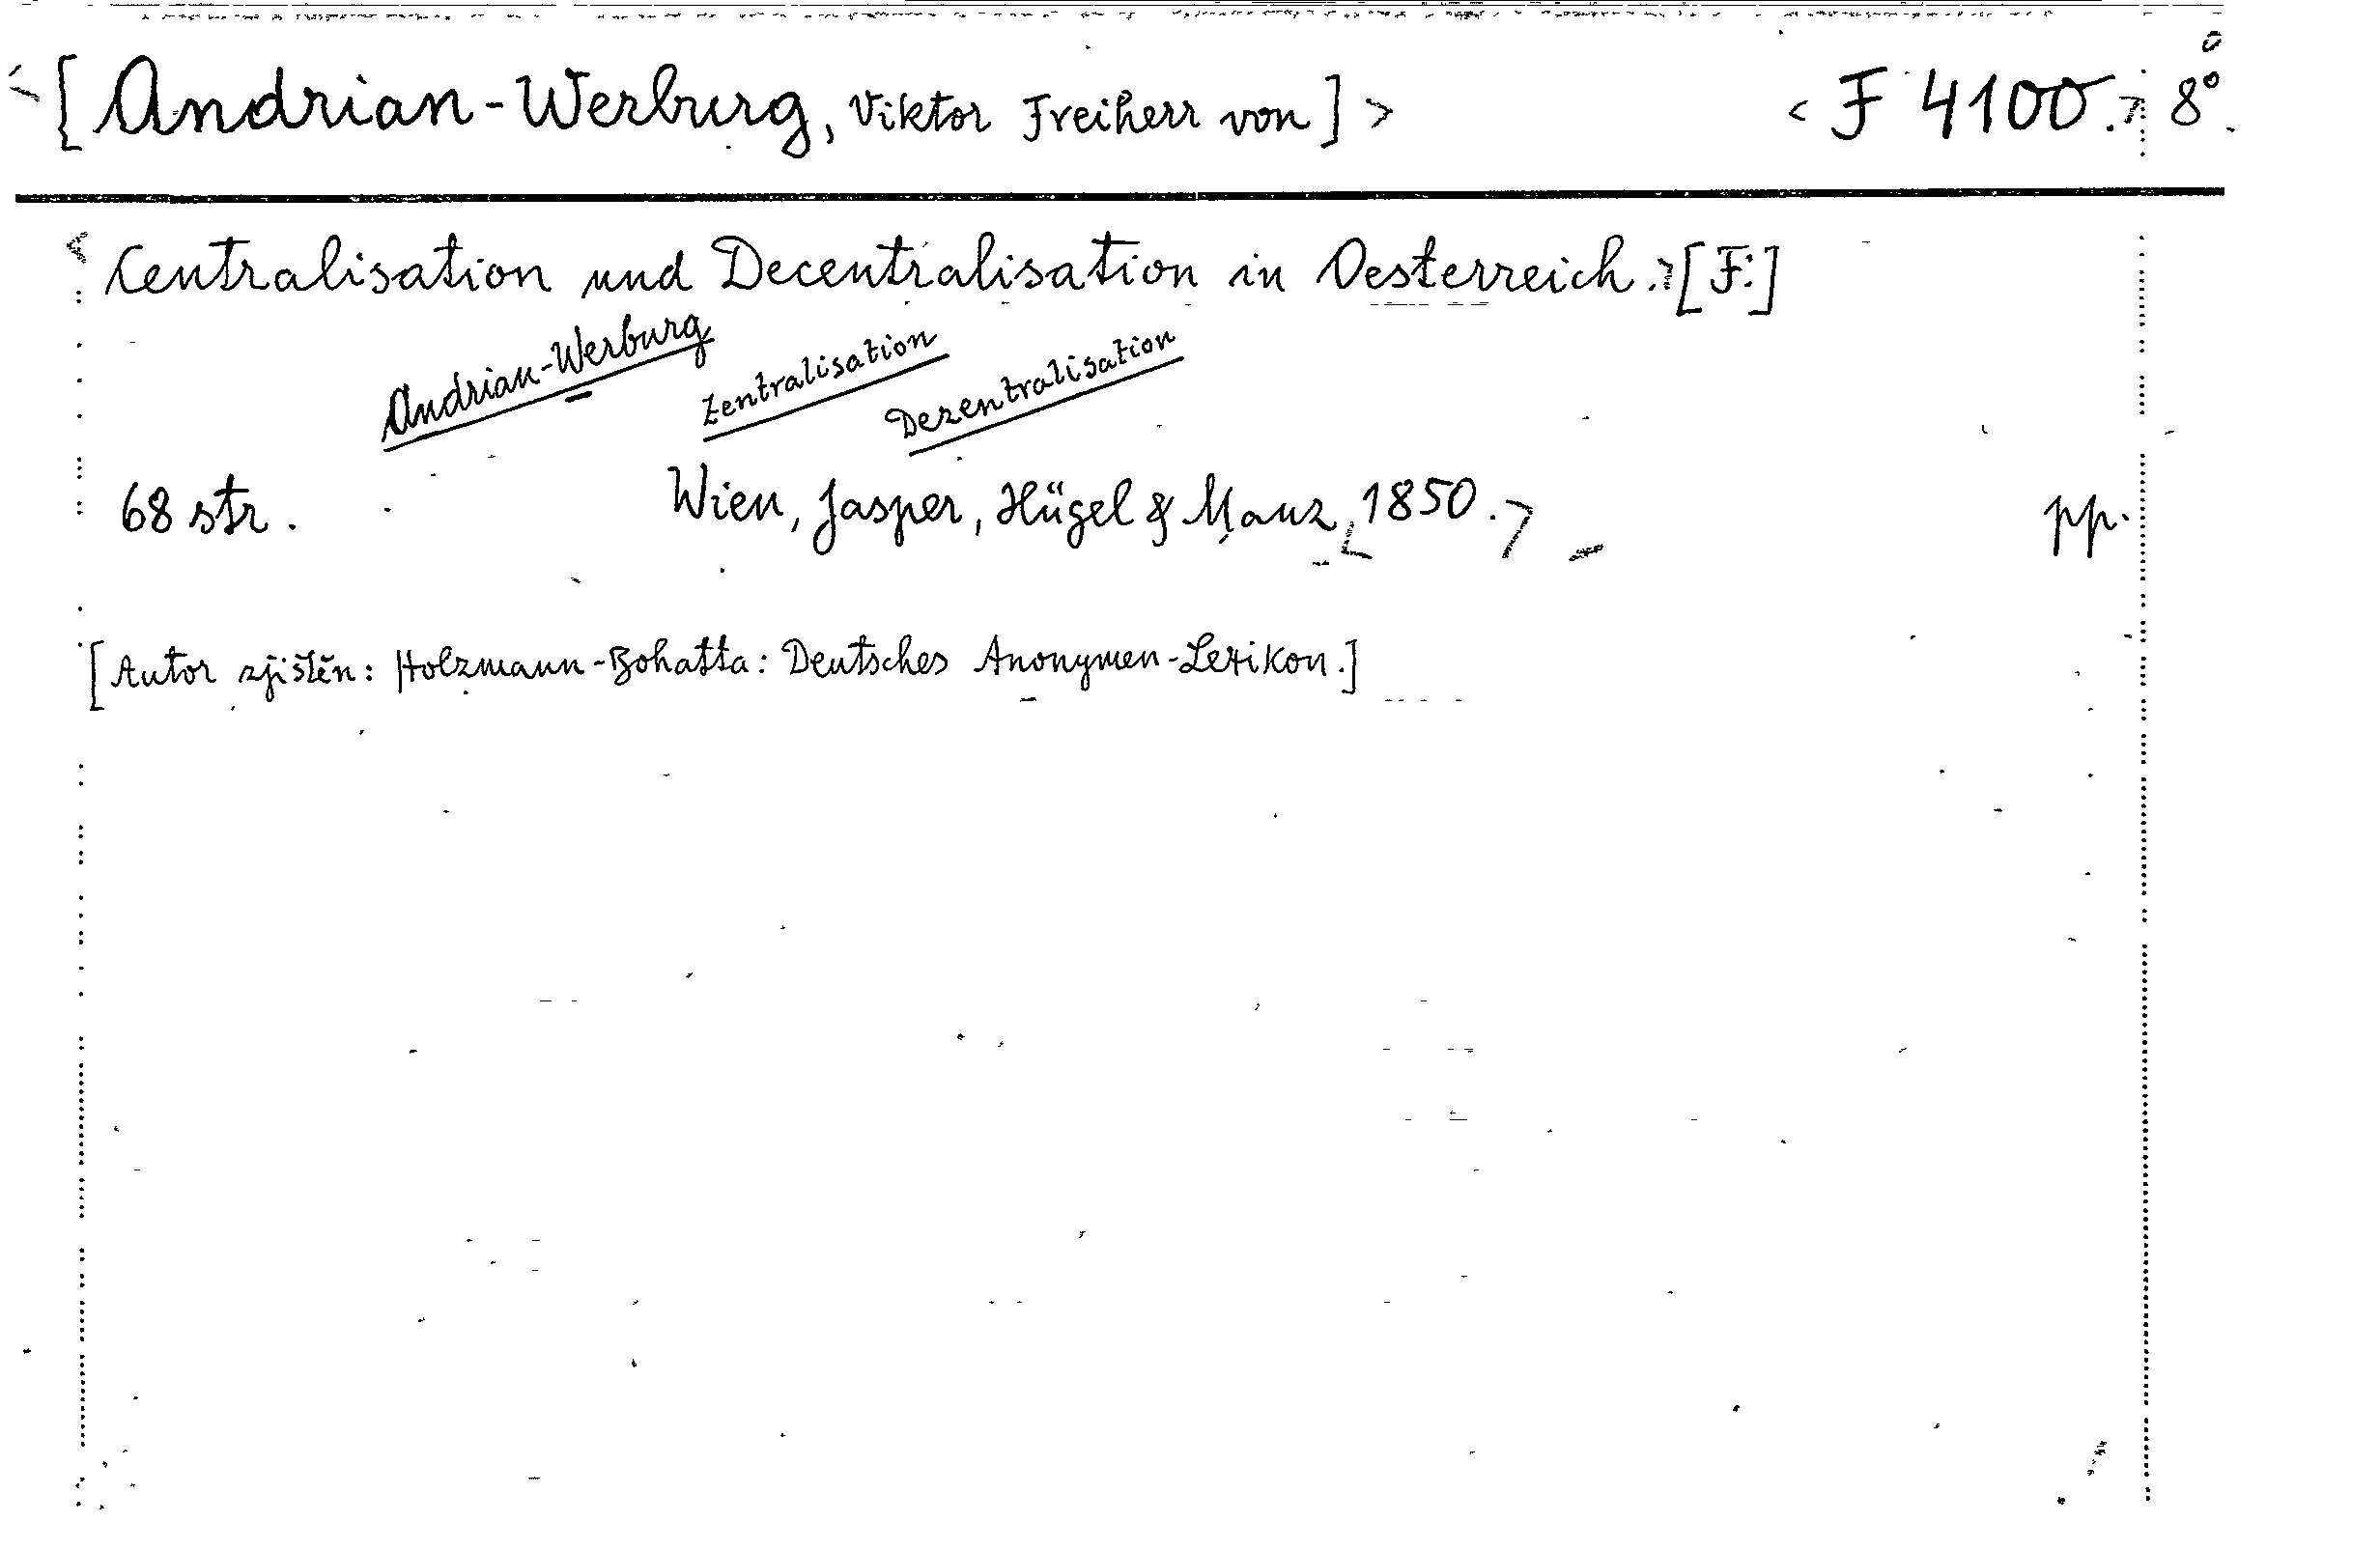 <[Andrian-Werburg, Viktor Freiherr von]> <F 4100.> 8°
<Centralisation und Decentralisation in Oesterreich.>[F:]
Andrian-Werburg Zentralisation Dezentralisation
68 str. Wien, Jasper, Hügel & Manz, <1850.> pp.
[Autor zjištěn: Holzmann-Bohatta: Deutsches Anonymen-Lexikon.]